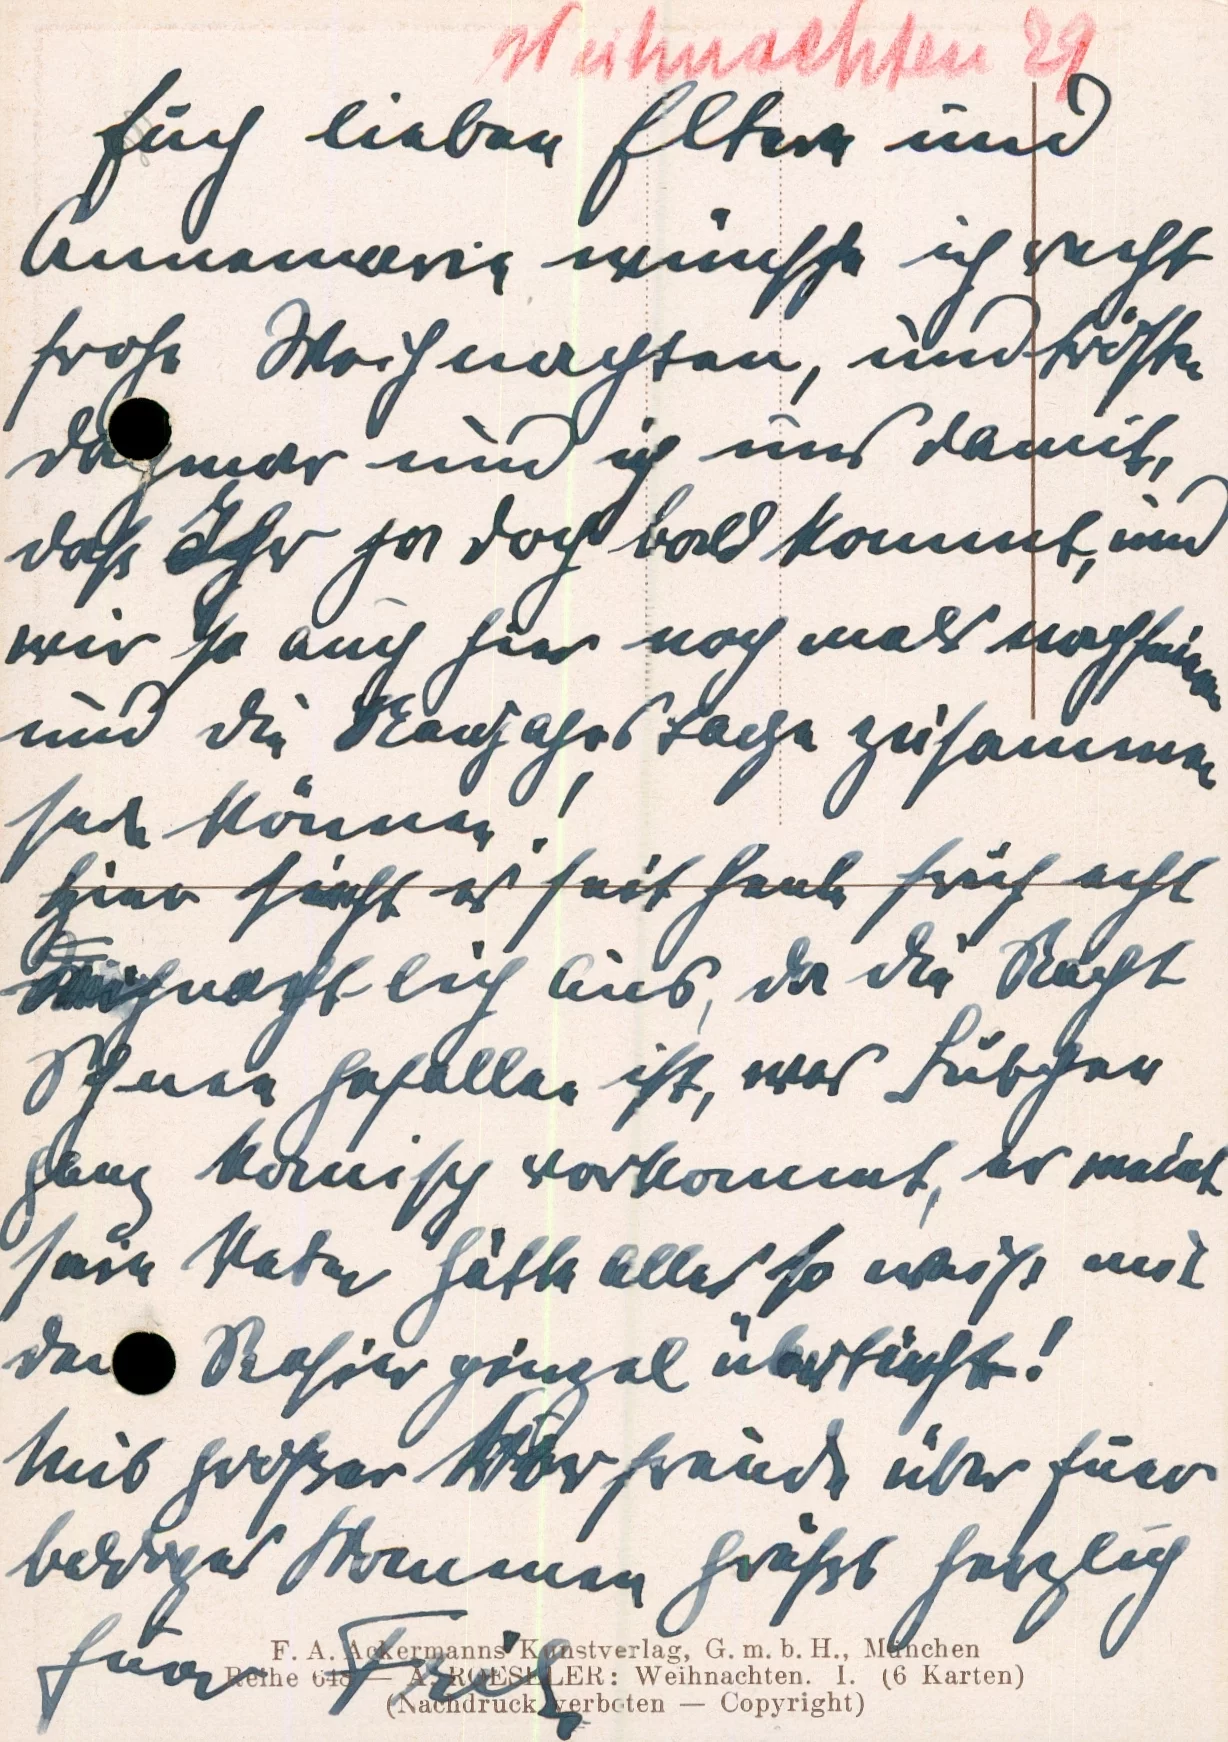 Weihnachten 29
Euch lieben Eltern und
Annemarie wünsche ich recht
frohe Weihnachten, und tröste
Dagmar und ich uns damit,
daß Ihr ja doch bald kommt, und
wir so auch hier noch mals nachfeiern
und die Neujahrstage zusammen
sein können!
Hier sieht es seit heute früh echt
weihnachtlich aus, da die Nacht
Schnee gefallen ist, was
ganz komisch vorkommt, er meint
sein Vater hätte alles so weiß mit
dem Rasierpinsel übertüncht!
Mit großer Vorfreude über Euer
baldiges Kommen grüßt herzlich
Euer Fritz
F. A. Ackermanns Kunstverlag, G. m. b. H., München
Reihe 648 — A. ROESELER: Weihnachten. I. (6 Karten)
(Nachdruck verboten — Copyright)